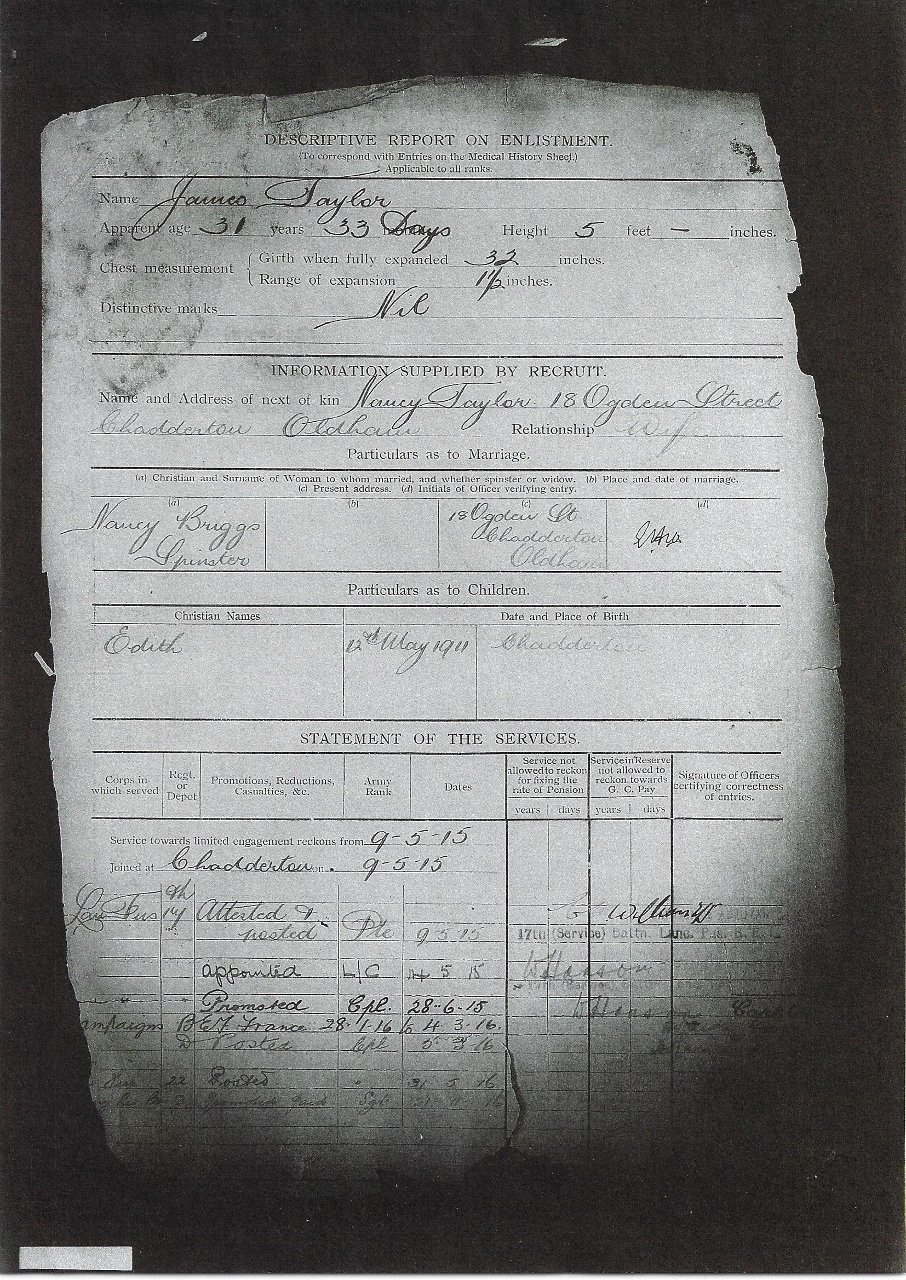 DESCRIPTIVE REPORT ON ENLISTMENT.
(To correspond with Entries on the Medical History Sheet.)
Applicable to all ranks.
Name James Taylor
Apparent age 31 years 33 Days Height 5 feet — inches.
Chest measurement { Girth when fully expanded 32 inches.
Range of expansion 1½ inches.
Distinctive marks Nil
INFORMATION SUPPLIED BY RECRUIT.
Name and Address of next of kin Nancy Taylor. 18 Ogden Street
Chadderton Oldham Relationship Wife
Particulars as to Marriage.
(a) Christian and Surname of Woman to whom married, and whether spinster or widow. (b) Place and date of marriage.
(c) Present address. (d) Initials of Officer verifying entry.
(a) (b) (c) (d)
Nancy Briggs 18 Ogden St.
Spinster Chadderton
Oldham
Particulars as to Children.
Christian Names Date and Place of Birth
Edith 12th May 1911 Chadderton
STATEMENT OF THE SERVICES.
Corps in which served Regt. or Depot Promotions, Reductions, Casualties, &c. Army Rank Dates Service not allowed to reckon for fixing the rate of Pension Service in Reserve not allowed to reckon towards G. C. Pay Signature of Officers certifying correctness of entries.
years days years days
Service towards limited engagement reckons from 9-5-15
Joined at Chadderton on . 9-5-15
Lan Fus 17th Attested &
posted Pte 9 5 15
17th (Service) Battn. Lanc. Fus.
appointed L/C 5 15
" " Promoted Cpl. 28-6-15
BEF France 28-1-16 to 4 3-16.
D Posted Cpl 5 3 16
Fus 22 Posted " 31 5 16
Sgt